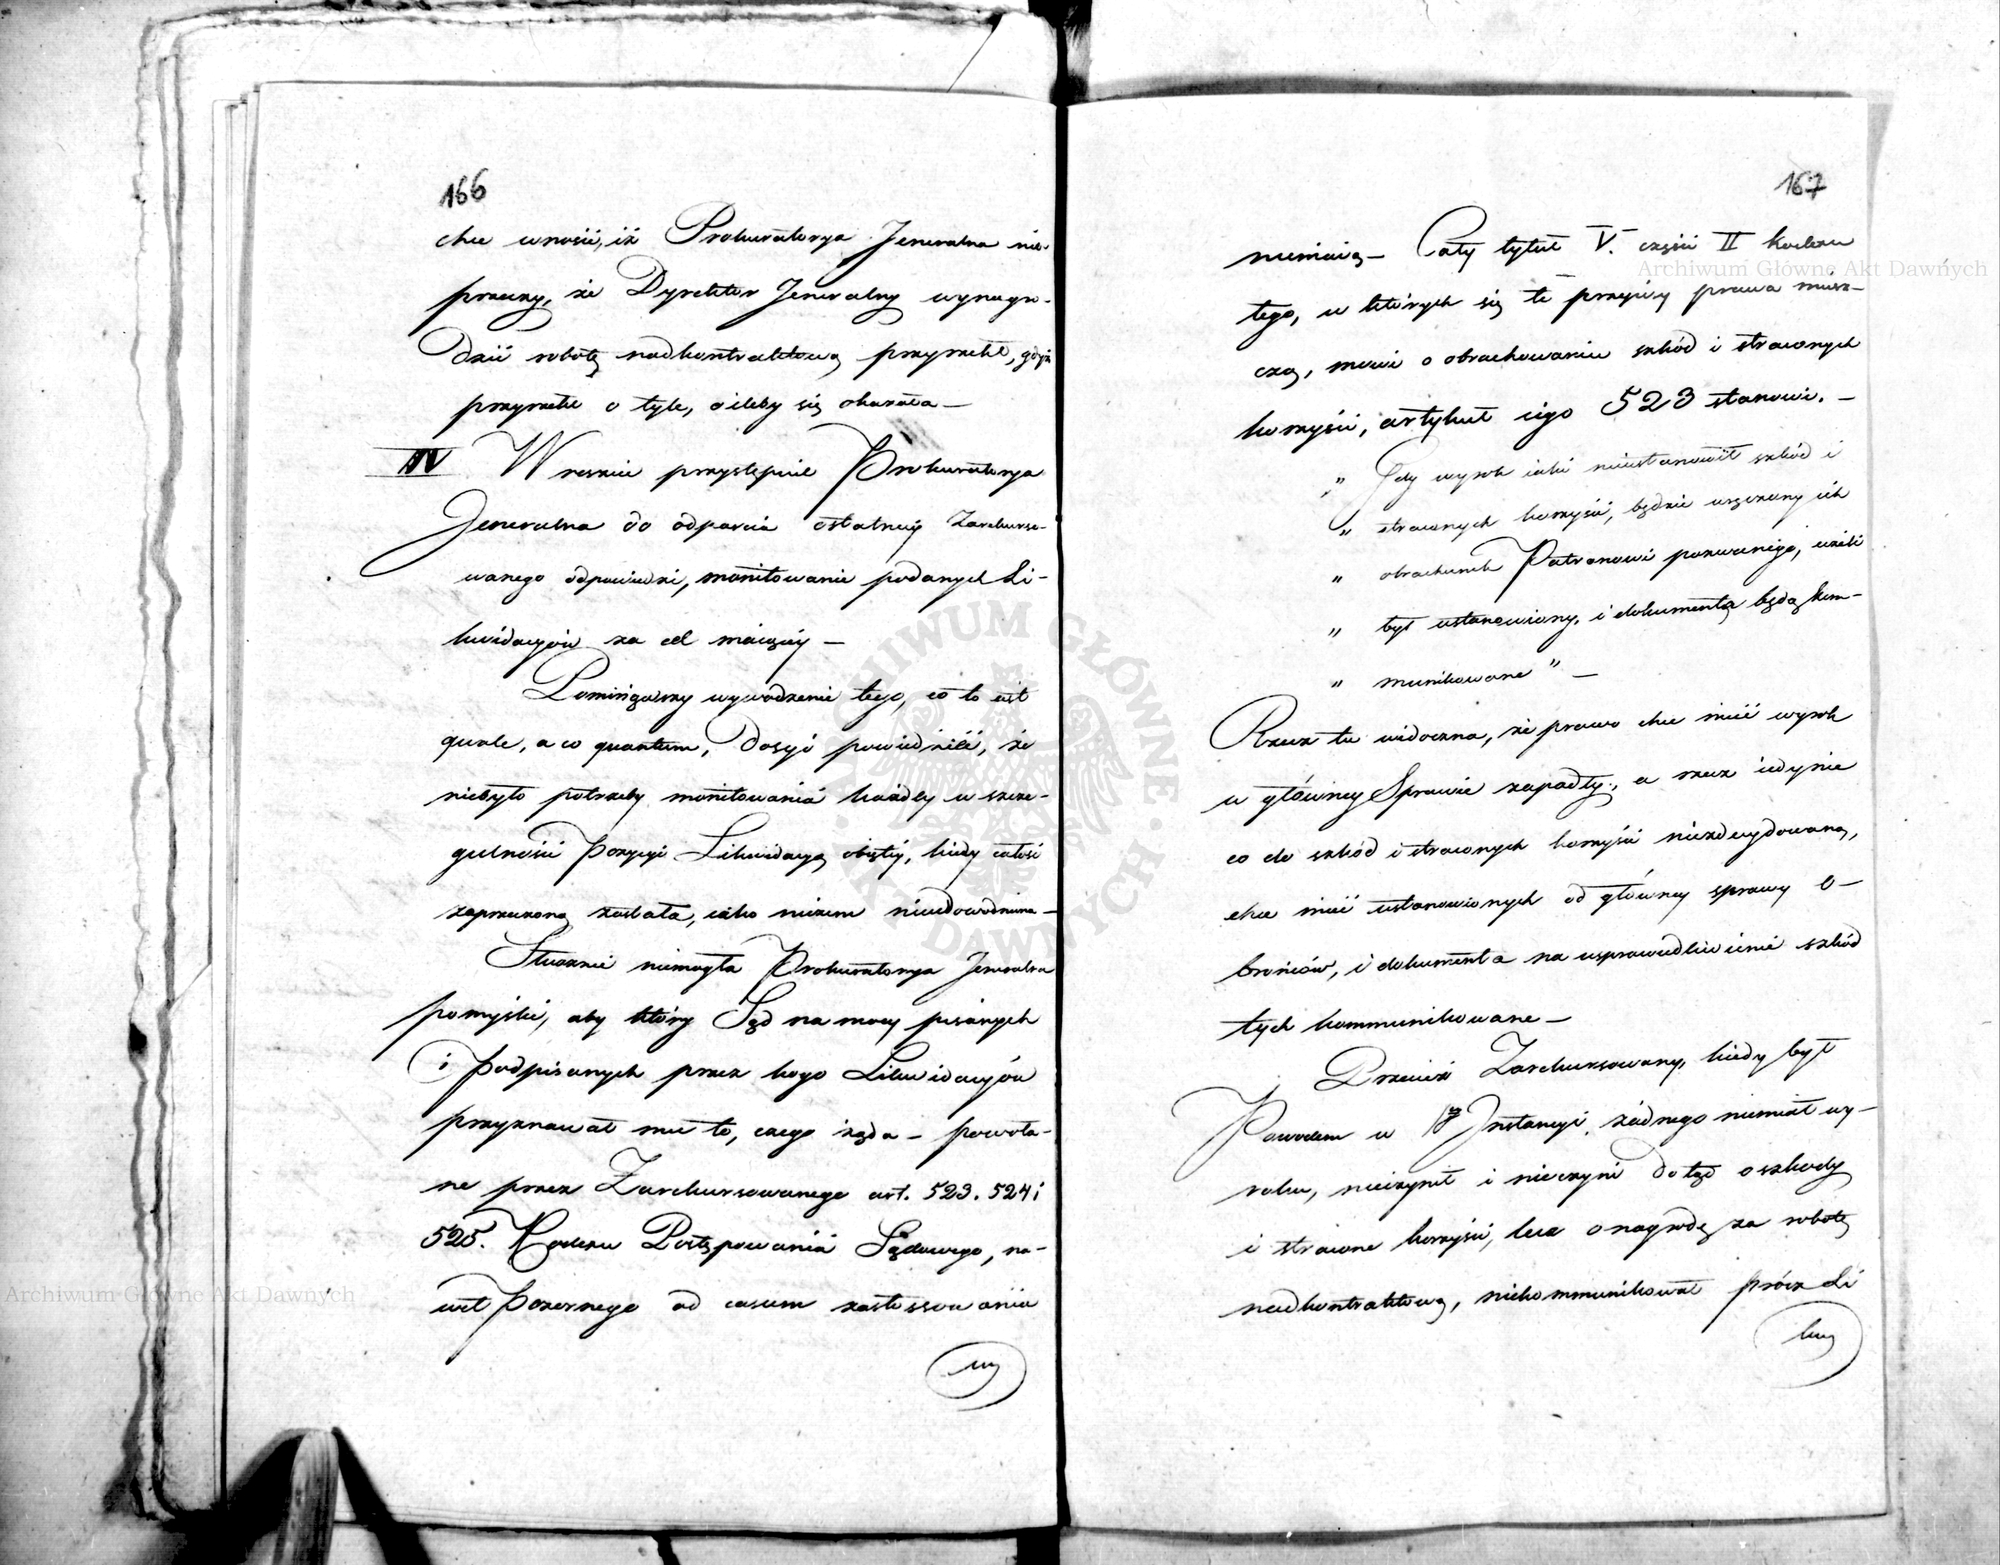 166
chce wnosić, iż Prokuratorya Jeneralna nie-
przeczy, że Dyrektor Jeneralny wynagro-
dzić robotę nadkontraktową przyrzekł, gdyż
przyrzekł o tyle, oileby się okazała —
IV Wreszcie przystępuie Prokuratorya
Jeneralna do odparcia ostatniey Zarekurso-
wanego odpowiedzi, monitowanie podanych Li-
kwidacyów za cel maiącéy —
Pominąwszy wywodzenie tego, co to iest
quale, a co quantum, dosyć powiedzieć, że
niebyło potrzeby monitowania każdéy w szcze-
gulności pozycyi Likwidacyą obiętéy, kiedy całość
zaprzeczoną została, iako niczem nieudowodniona —
Słusznie niemogła Prokuratorya Jeneralna
pomyśleć, aby który Sąd na mocy pisanych
i podpisanych przez kogo Likwidacyów
przyznawał mu to, czego żąda — powoła-
ne przez Zarekursowanego art. 523. 524 i
525. Kodexu Postępowania Sądowego, na-
wet pozornego ad casum zastosowania
nie
167
niemaią — Cały tytuł V. części II kodexu
tego, w których się te przepisy prawa miesz-
czą, mówi o obrachowaniu szkód i straconych
korzyści, artykuł iego 523 stanowi. —
„ Gdy wyrok iaki nieustanowił szkód i
„ straconych korzyści, będzie wręczony ich
„ obrachunek Patronowi pozwanego, ieżeli
„ był ustanowiony, i dokumenta będą kom-
„ munikowane " —
Rzecz tu widoczna, że prawo chce mieć wyrok
w główney Sprawie zapadły, a rzecz iedynie
co do szkód i straconych korzyści niezdecydowaną,
chce mieć ustanowionych od główney sprawy o-
brońców, i dokumenta na usprawiedliwienie szkód
tych kommunikowane —
Przecież Zarekursowany, kiedy był
Powodem w 1éy Instancyi, żadnego niemiał wy-
roku, nieczynił i nieczyni dotąd o szkody
i stracone korzyści, lecz o nagrodę za robotę
nadkontraktową, niekommunikował prócz Li
kwi
Archiwum Główne Akt Dawnych
Archiwum Główne Akt Dawnych
ARCHIWUM GŁÓWNE AKT DAWNYCH